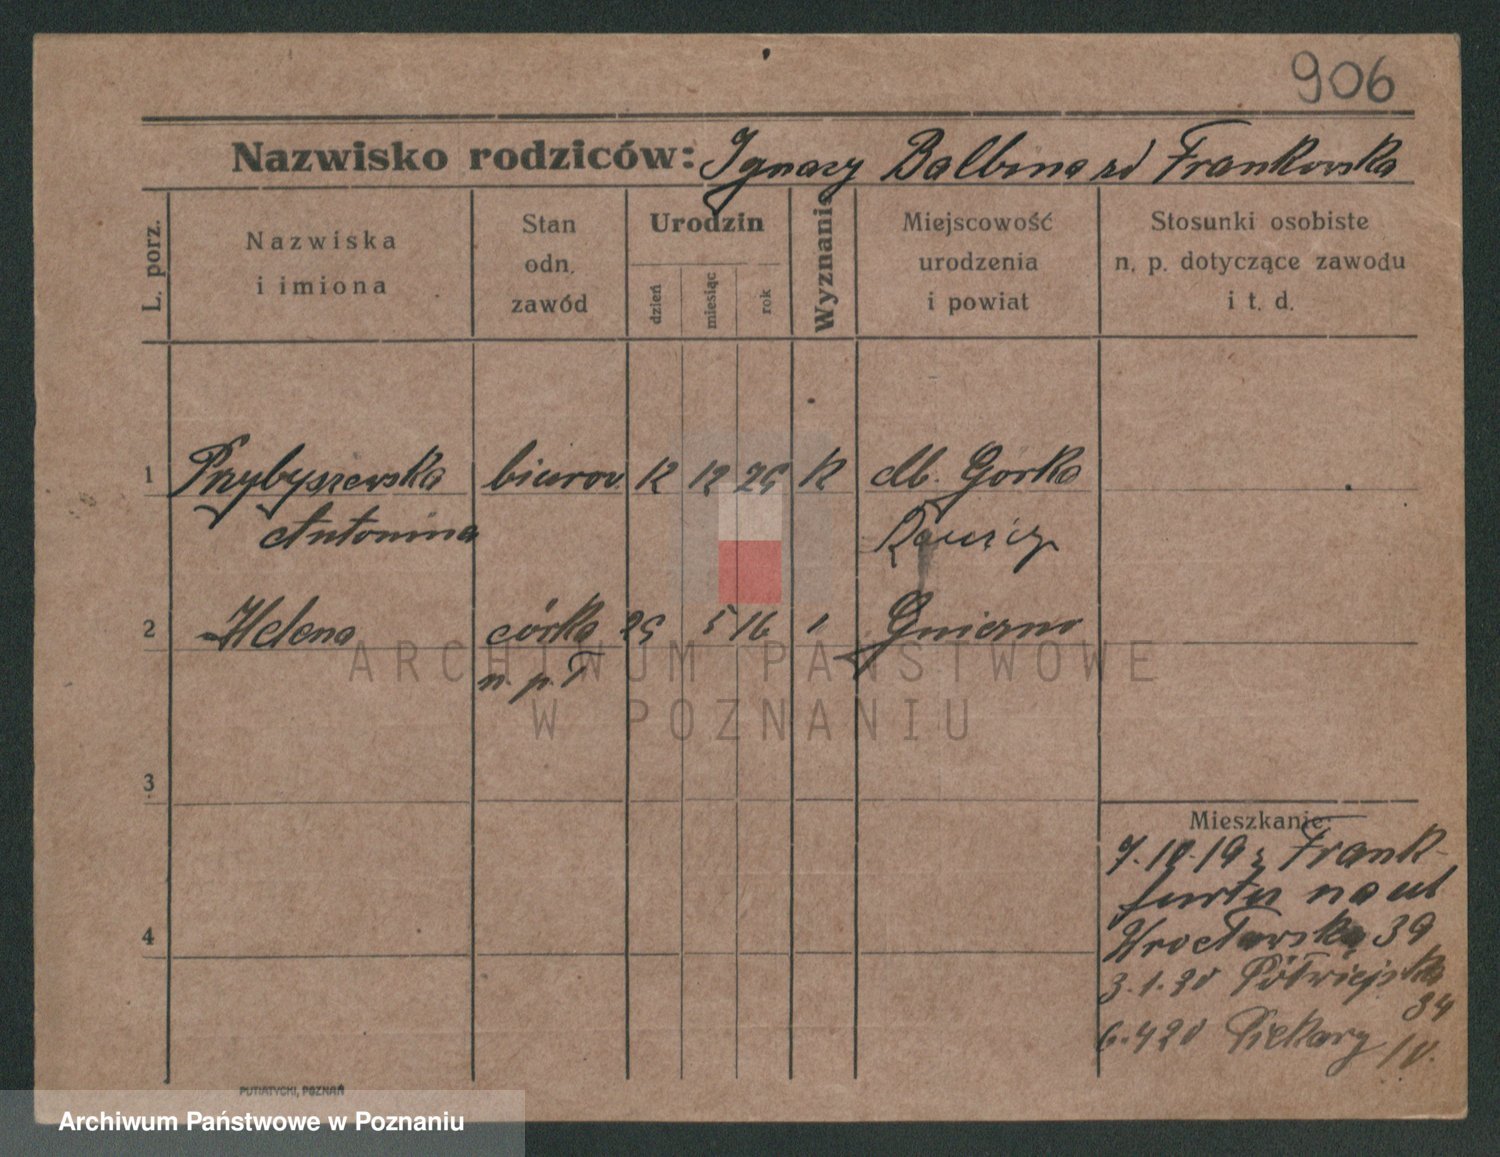 906
Nazwisko rodziców: Ignacy Balbina zd Frankowska
L. porz.
Nazwiska
i imiona
Stan
odn.
zawód
Urodzin
dzień
miesiąc
rok
Wyznanie
Miejscowość
urodzenia
i powiat
Stosunki osobiste
n. p. dotyczące zawodu
i t. d.
1 Przybyszewska biurow. 12 12 K Górka
Antonina
2 Helena córka 25 5 16 Gniezno
n. p. T
3
4
Mieszkanie:
7.10.19 z Frank-
furtu na ul
Wrocławską 39
3.1.20 Półwiejska
34
6.4 20 Piekary
PUTIATYCKI, POZNAŃ
ARCHIWUM PAŃSTWOWE
W POZNANIU
Archiwum Państwowe w Poznaniu